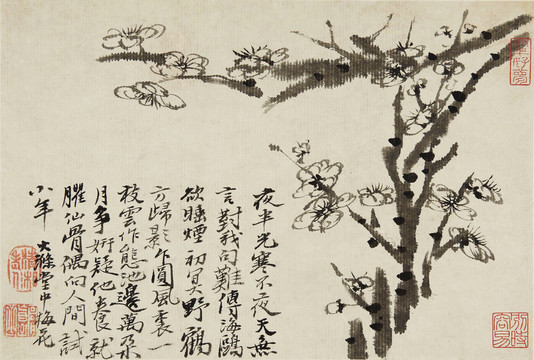 夜半光寒不夜天無
言對我句難傳海鷗
欲睡煙初冥野鶴
方歸影乍圓風裏一
枝雲作態池邊萬朵
月爭妍疑他養就
臞仙骨偶向人間試
小年 大滌堂中梅花